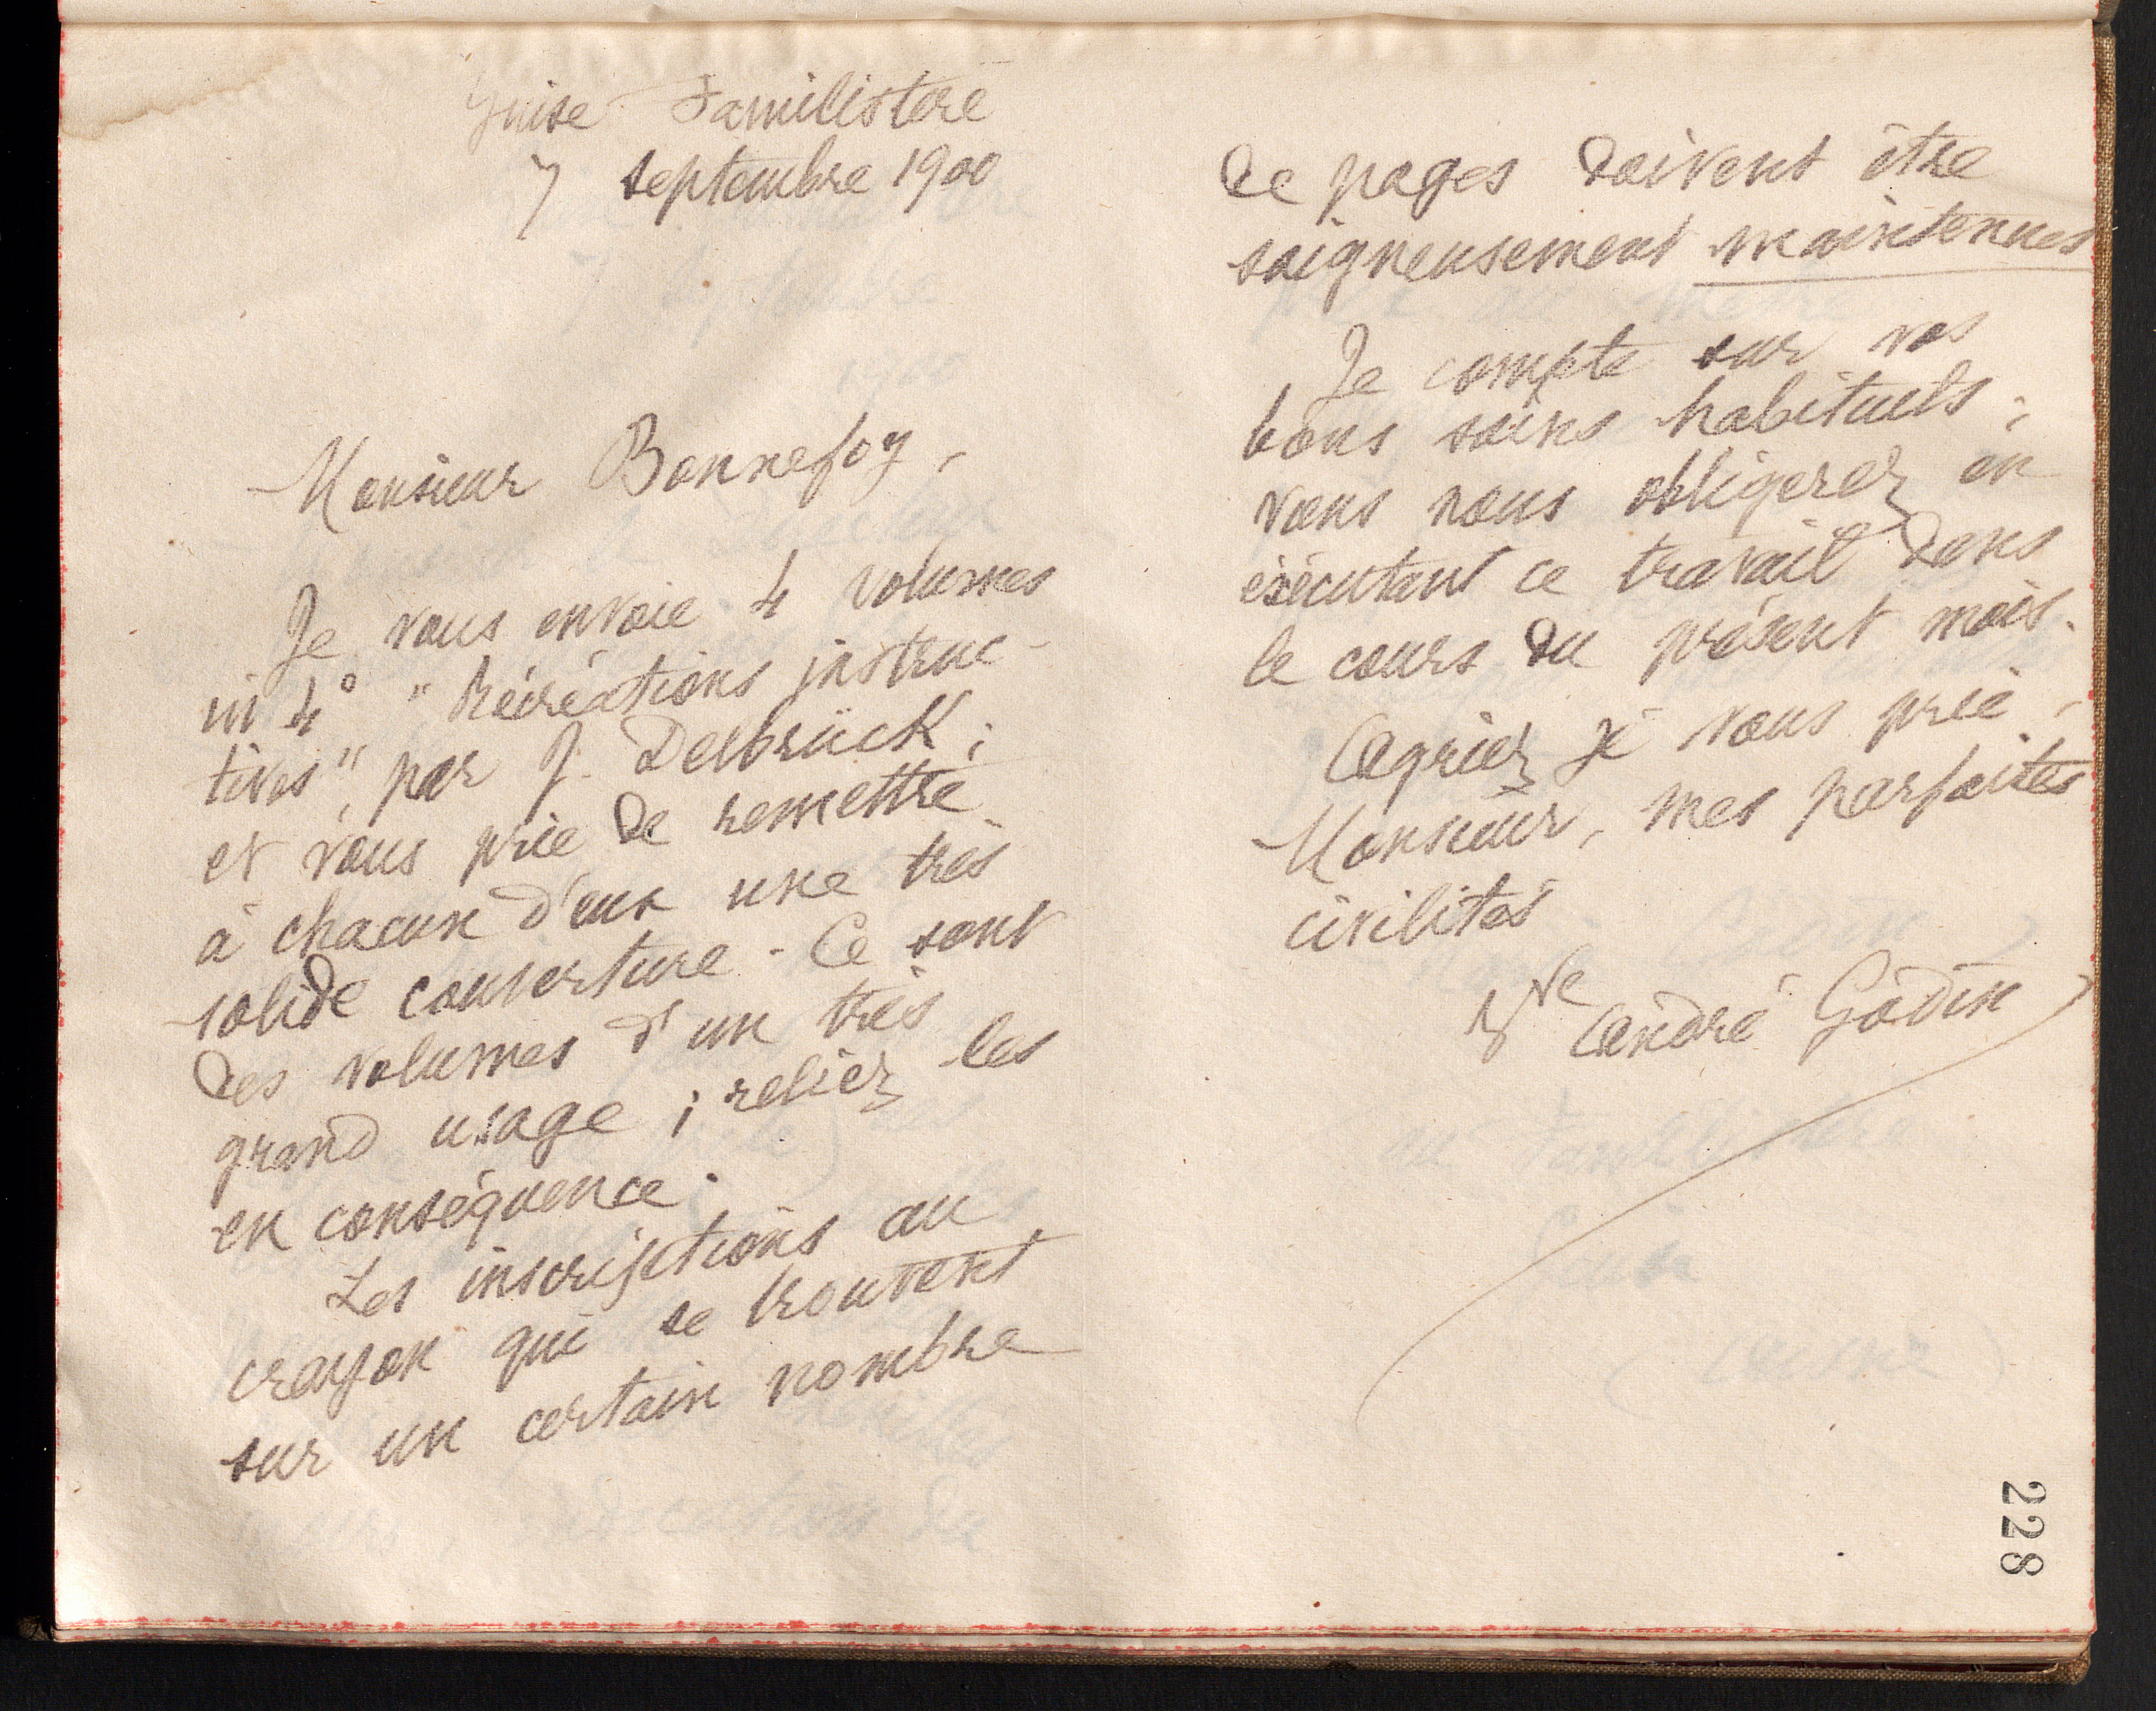 Guise Familistère
7 septembre 1900
Monsieur Bonnefoy,
Je vous envoie 4 volumes
in 4° "Récréations instruc-
tives", par J. Delbrück ;
et vous prie de remettre
à chacun d'eux une très
solide couverture - Ce sont
des volumes d'un très
grand usage ; reliez les
en conséquence.
Les inscriptions au
crayon qui se trouvent
sur un certain nombre
de pages doivent être
soigneusement maintenues
Je compte sur vos
bons soins habituels ;
vous nous obligerez en
exécutant ce travail dans
le cours du présent mois.
Agréez je vous prie,
Monsieur, mes parfaites
civilités
Vve André Godin
228